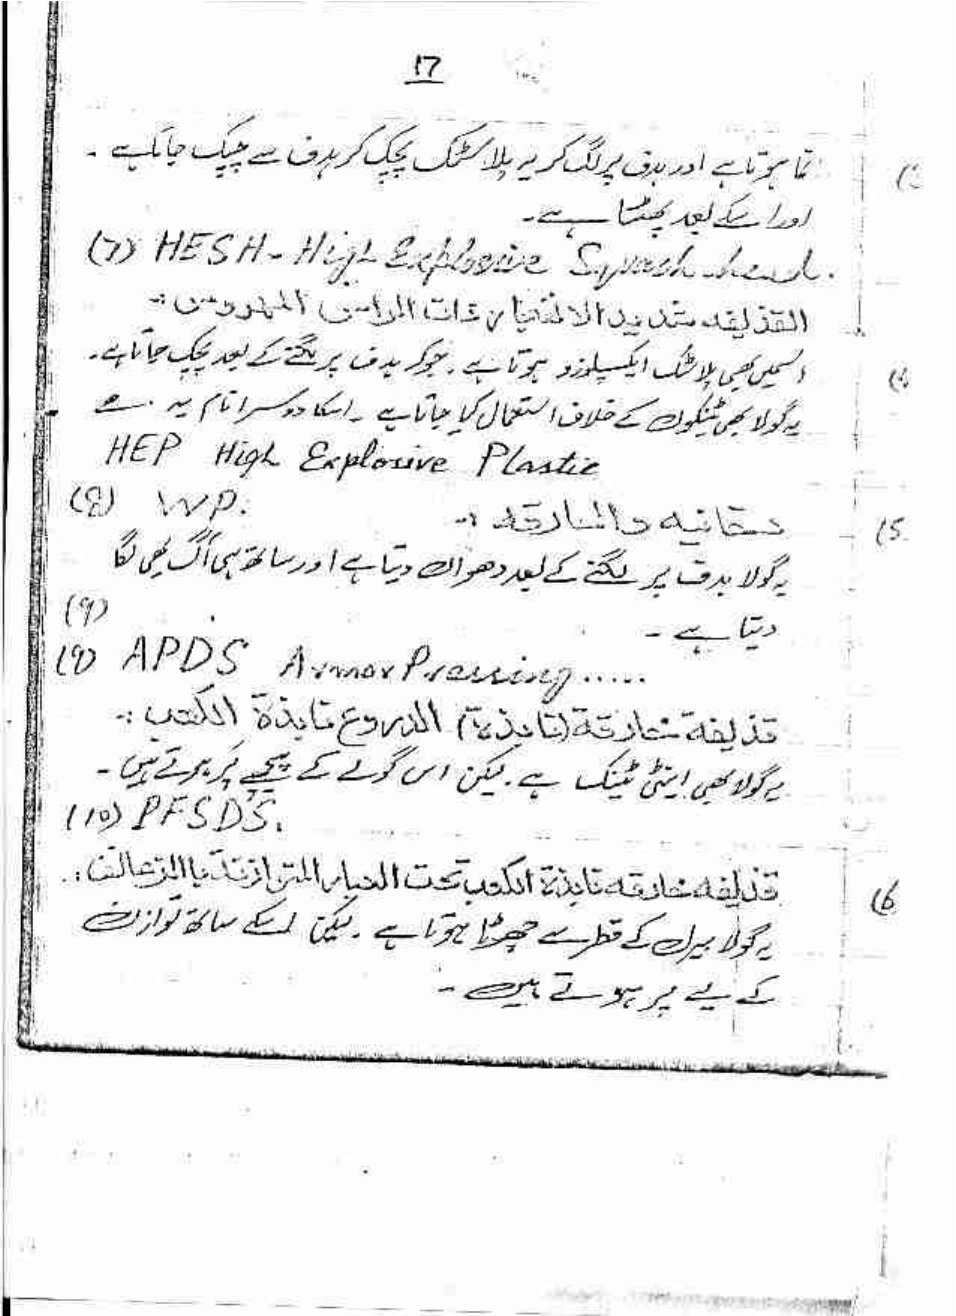 17
نما ہوتا ہے اور ہدف پر لگ کر یہ پلاسٹک پچک کر ہدف سے چپک جاتا ہے ۔
اور اسکے بعد پھٹتا ہے۔
(7) HESH - High Explosive Squash head.
القذیفه شدید الانفجار ذات الراس المهروس :-
اسمیں بھی پلاسٹک ایکسپلوزو ہوتا ہے ۔ جو کہ ہدف پر لگنے کے بعد پچک جاتا ہے۔
یہ گولا بھی ٹینکوں کے خلاف استعمال کیا جاتا ہے ۔ اسکا دوسرا نام یہ ہے
HEP High Explosive Plastic
(8) WP.
دخانیه والحارقه :-
(5
یہ گولا ہدف پر لگنے کے بعد دھواں دیتا ہے اور ساتھ ہی آگ بھی لگا
(9)
دیتا ہے ۔
(9) APDS Armor Pressing .....
قذیفة خارقة (نابذة) الدروع نابذة الکعب :-
یہ گولا بھی اینٹی ٹینک ہے ۔ لیکن اس گولے کے پیچھے پَر ہوتے ہیں ۔
(10) PFSDS.
قذیفه خارقه نابذة الکعب تحت العیار
(6
یہ گولا بیرل کے قطر سے چھوٹا ہوتا ہے ۔ لیکن اسکے ساتھ توازن
کے لیے پر ہوتے ہیں ۔